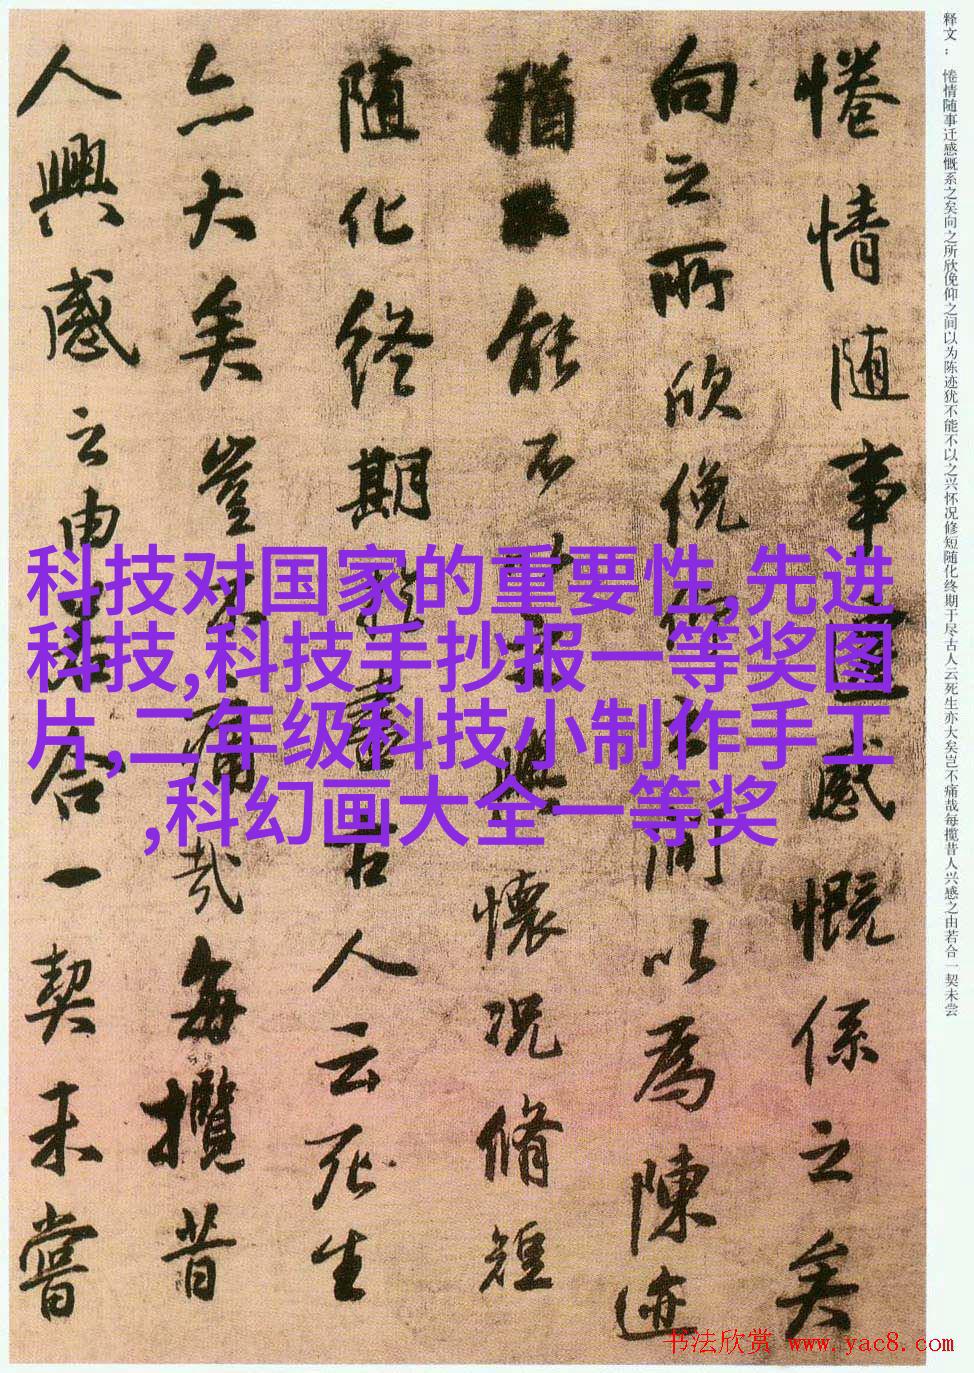 释文：倦情随事迁感慨系之矣向之所欣俛仰之间以为陈迹犹不能不以之兴怀况修短随化终期于尽古人云死生亦大矣岂不痛哉每揽昔人兴感之由若合一契未尝
倦情随事迁感慨係之矣
向之所欣俛仰之间以為陳迹
猶不能不以之興懷况脩短
随化终期於盡古人云死生
亦大矣豈不痛哉每攬昔
人興感之由若合一契未嘗
科技对国家的重要性,先进
科技,科技手抄报一等奖图
片,二年级科技小制作手工
,科幻画大全一等奖
书法欣赏 www.yac8.com